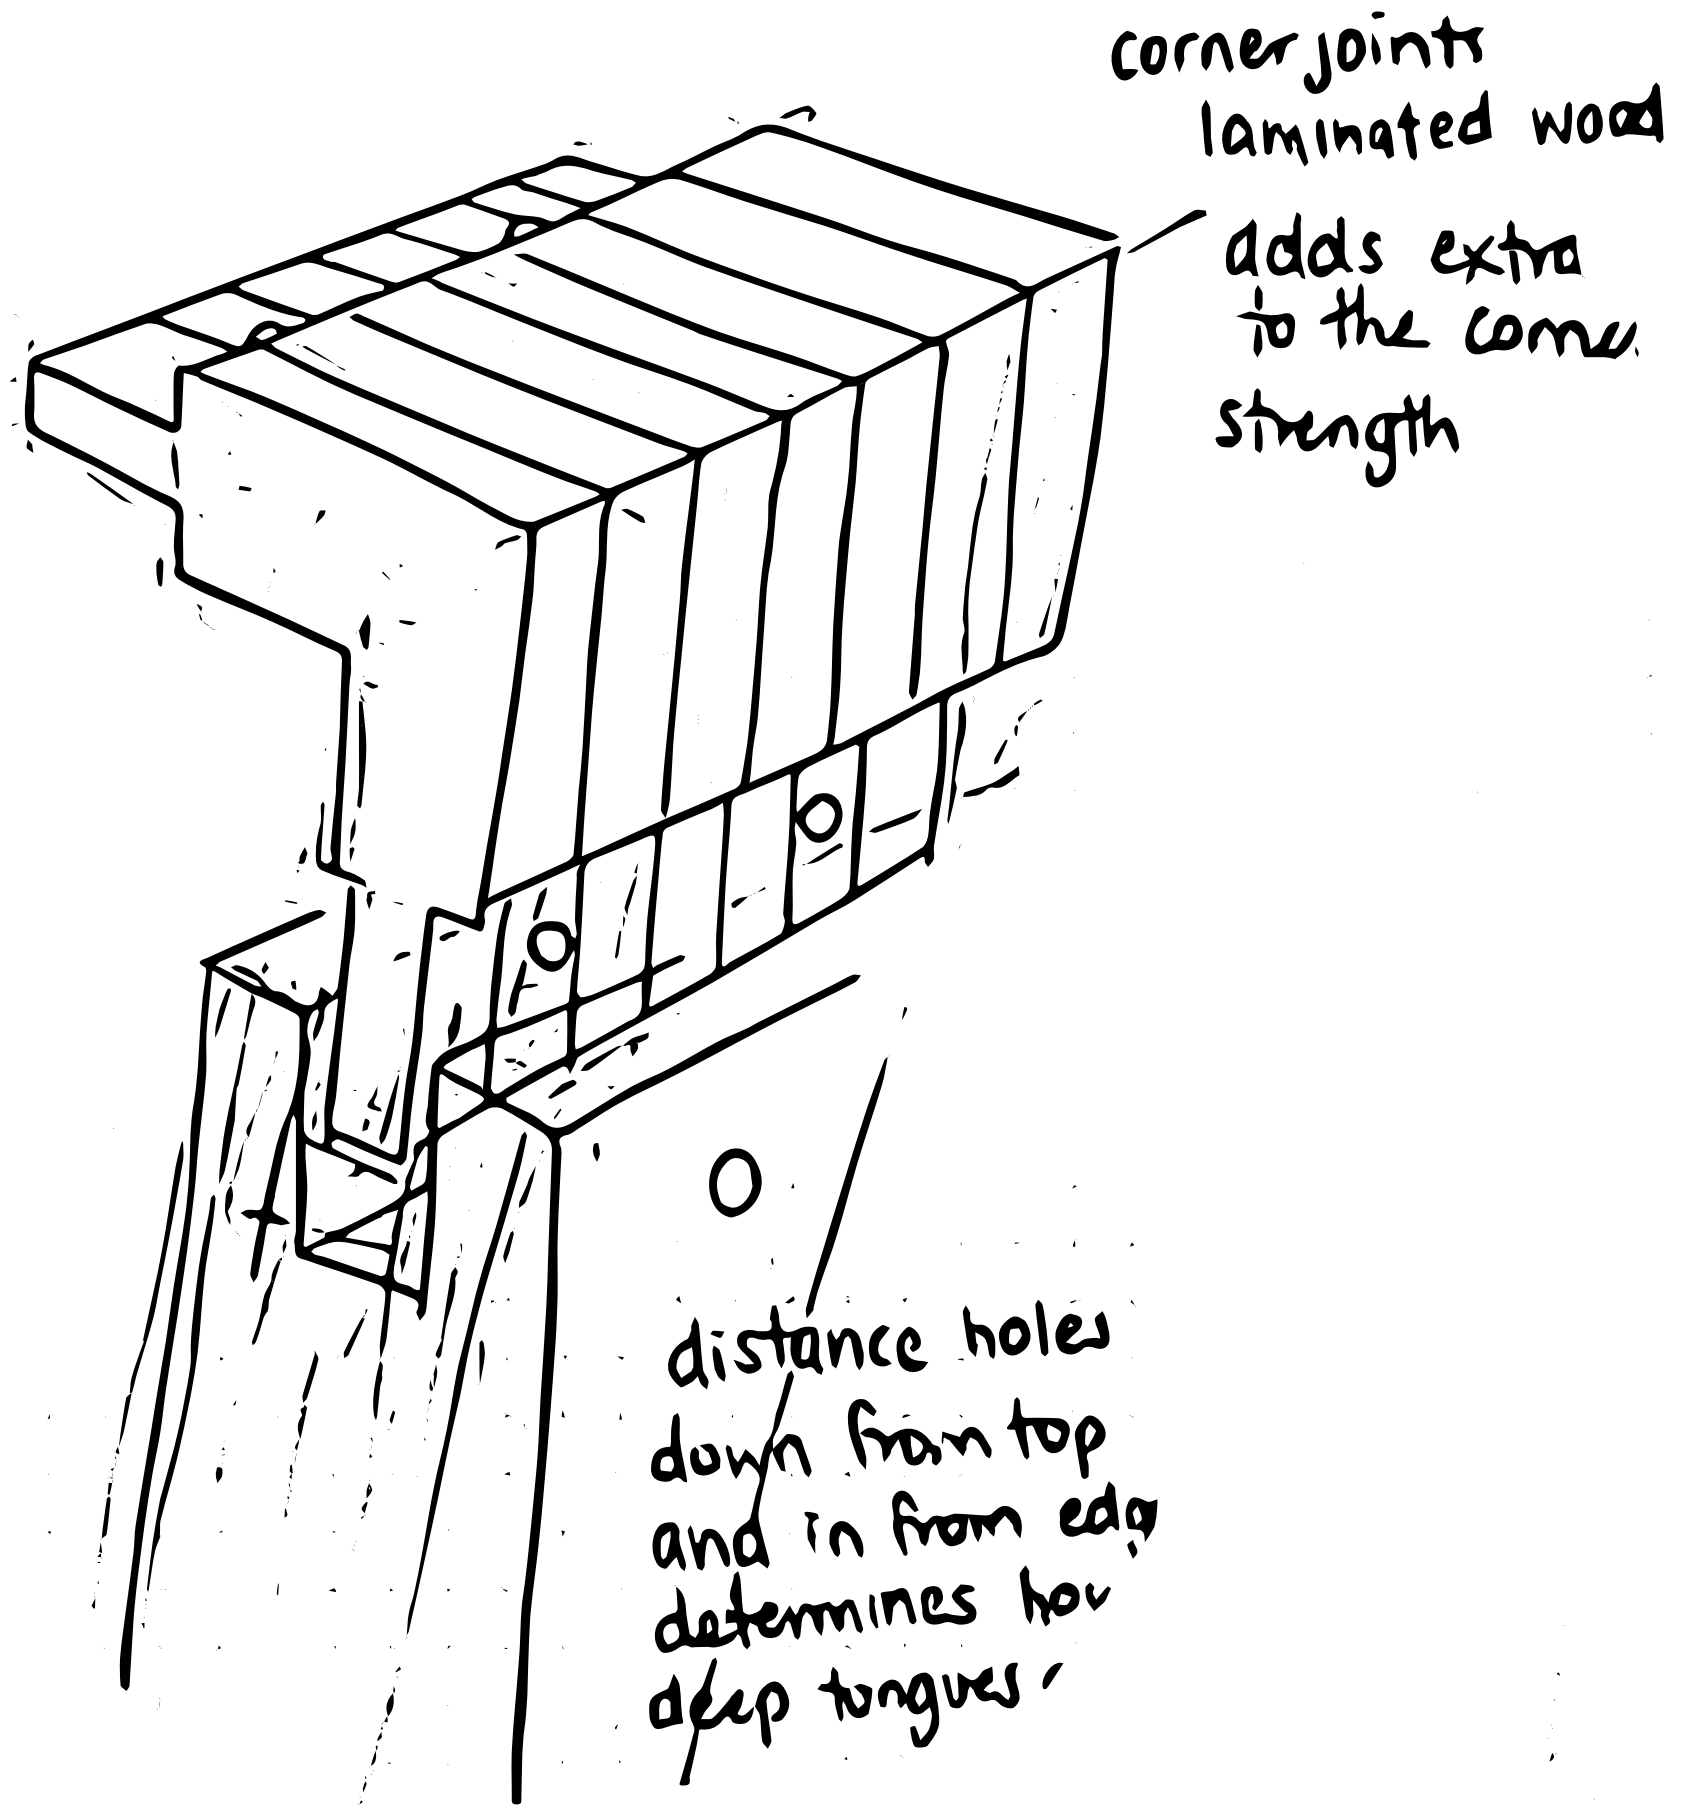 corner joints
laminated wood
adds extra
to the corner
strength
distance holes
down from top
and in from edge
determines how
deep tongues